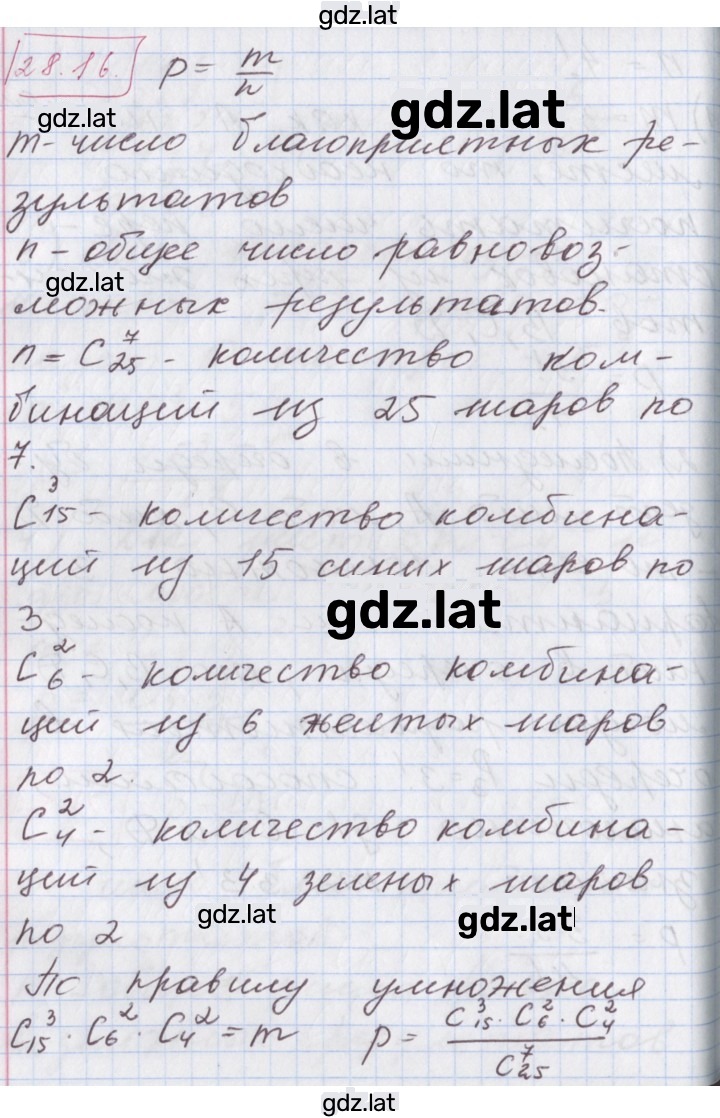 gdz.lat
28.16. p = m/n
gdz.lat
gdz.lat
m - число благоприятных ре-
зультатов
n - общее число равновоз-
gdz.lat
можных результатов.
n = C₂₅⁷ - количество ком-
бинаций из 25 шаров по
7.
C₁₅³ - количество комбина-
ций из 15 синих шаров по
3
gdz.lat
C₆² - количество комбина-
ций из 6 желтых шаров
по 2.
C₄² - количество комбина-
ций из 4 зеленых шаров
по 2
gdz.lat
gdz.lat
По правилу умножения
C₁₅³ · C₆² · C₄² = m p = C₁₅³ · C₆² · C₄² / C₂₅⁷
gdz.lat